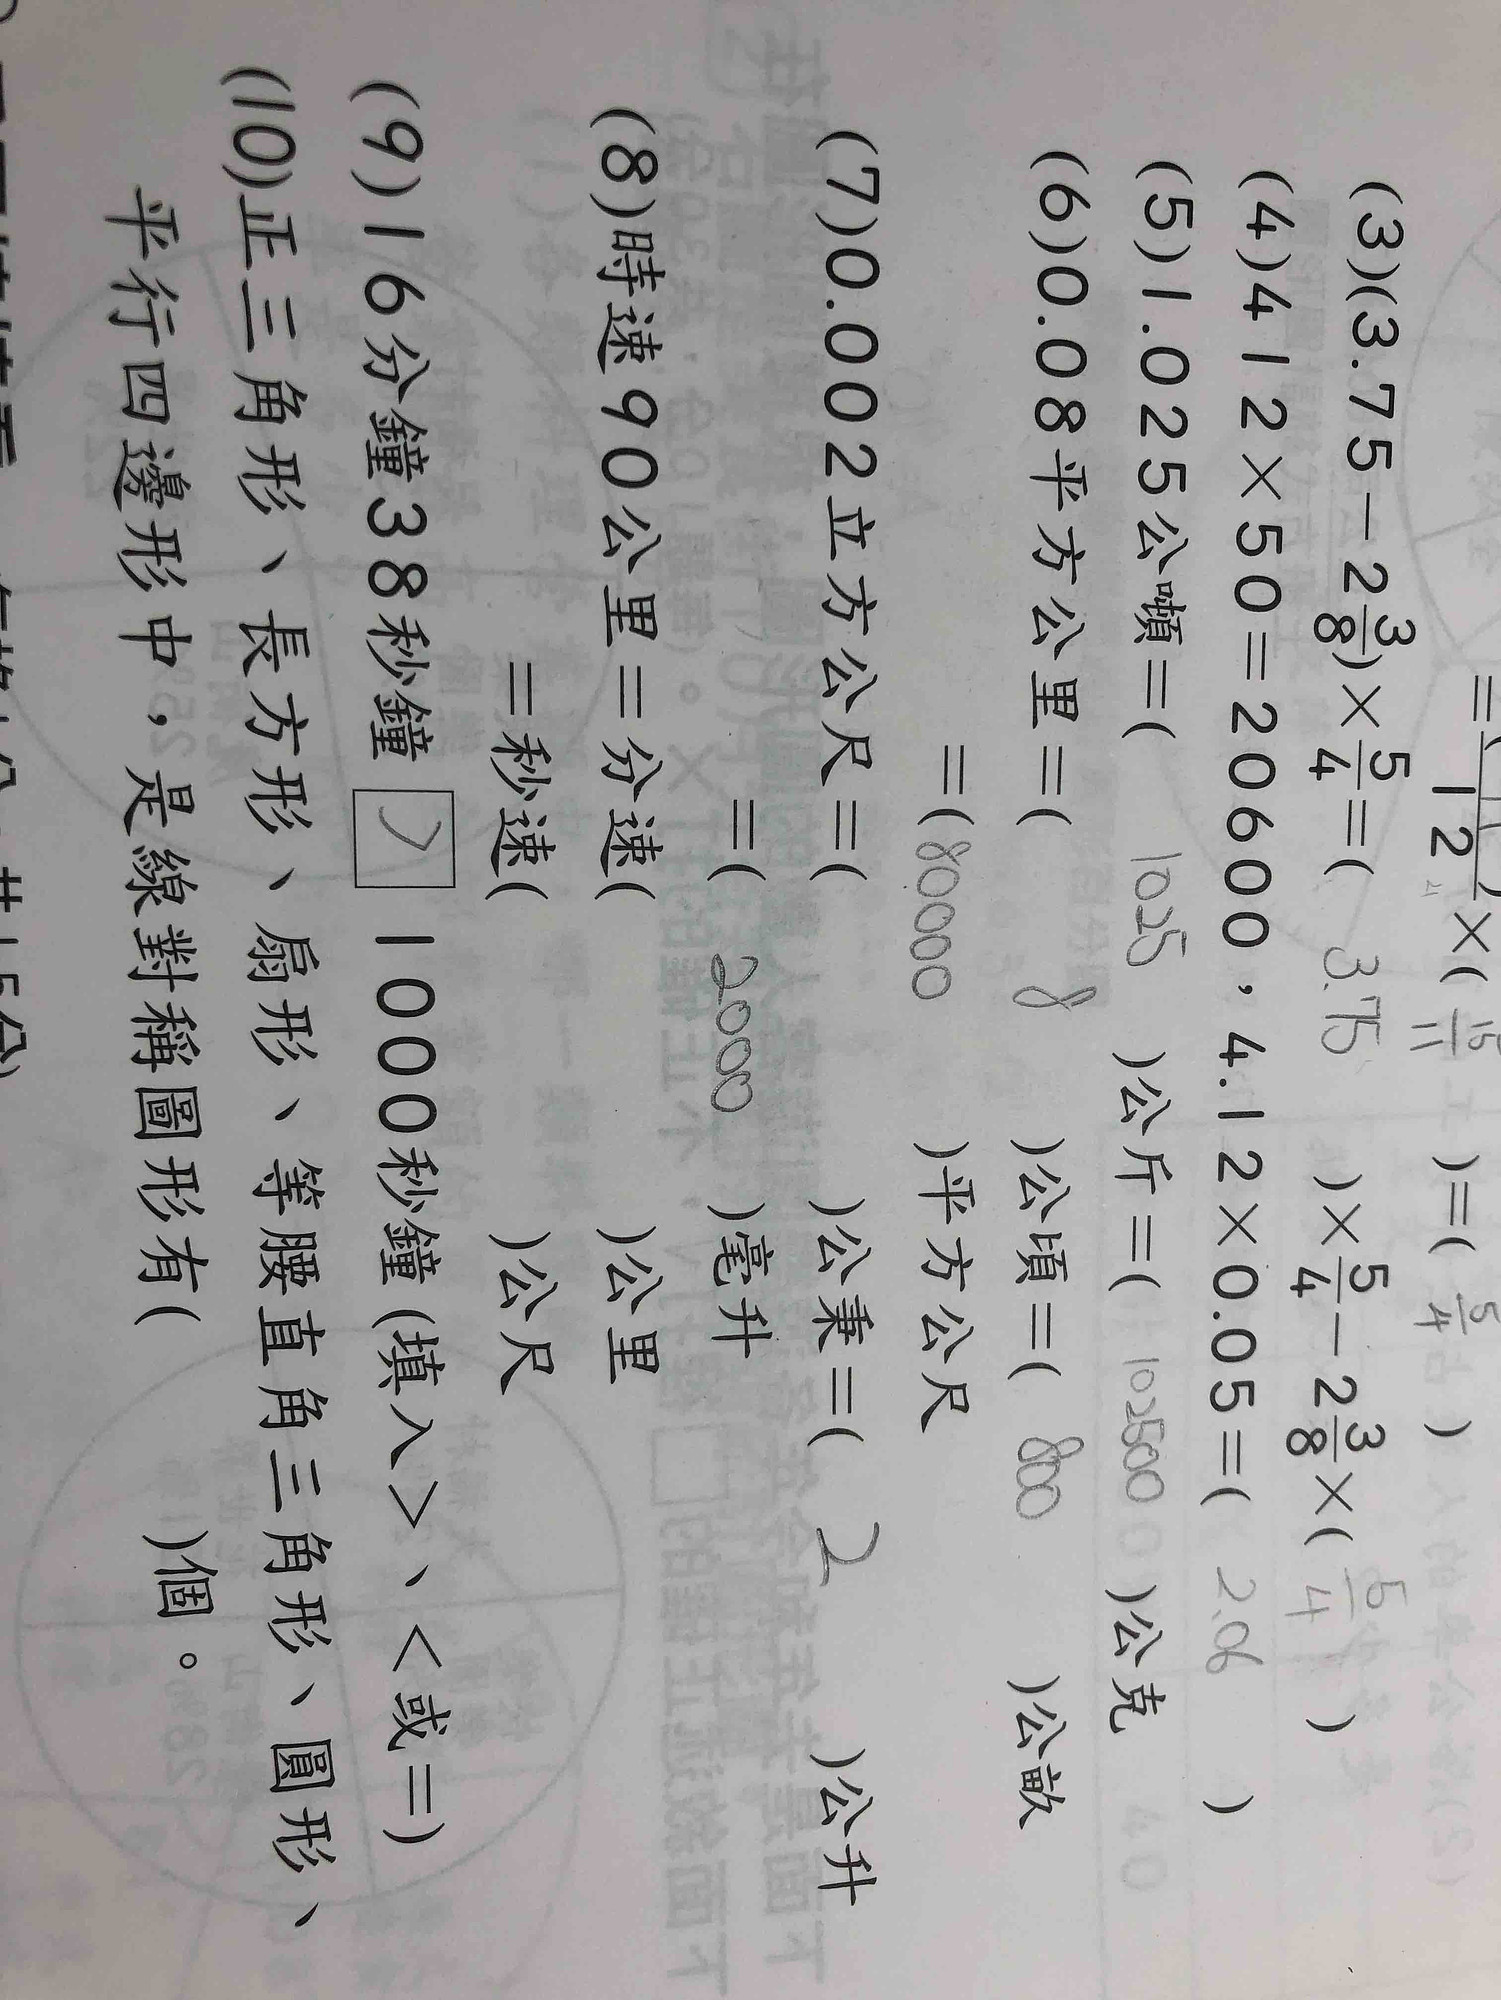 =(1/12)×( 15/11 )=( 5/4 )
(3)(3.75-2 3/8)×5/4=( 3.75 )×5/4-2 3/8×( 5/4 )
(4)412×50=20600,4.12×0.05=( 2.06 )
(5)1.025公噸=( 1025 )公斤=( 1025000 )公克
(6)0.08平方公里=( 8 )公頃=( 800 )公畝
=( 80000 )平方公尺
(7)0.002立方公尺=( )公秉=( 2 )公升
=( 2000 )毫升
(8)時速90公里=分速( )公里
=秒速( )公尺
(9)16分鐘38秒鐘 > 1000秒鐘(填入>、<或=)
(10)正三角形、長方形、扇形、等腰直角三角形、圓形、
平行四邊形中,是線對稱圖形有( )個。